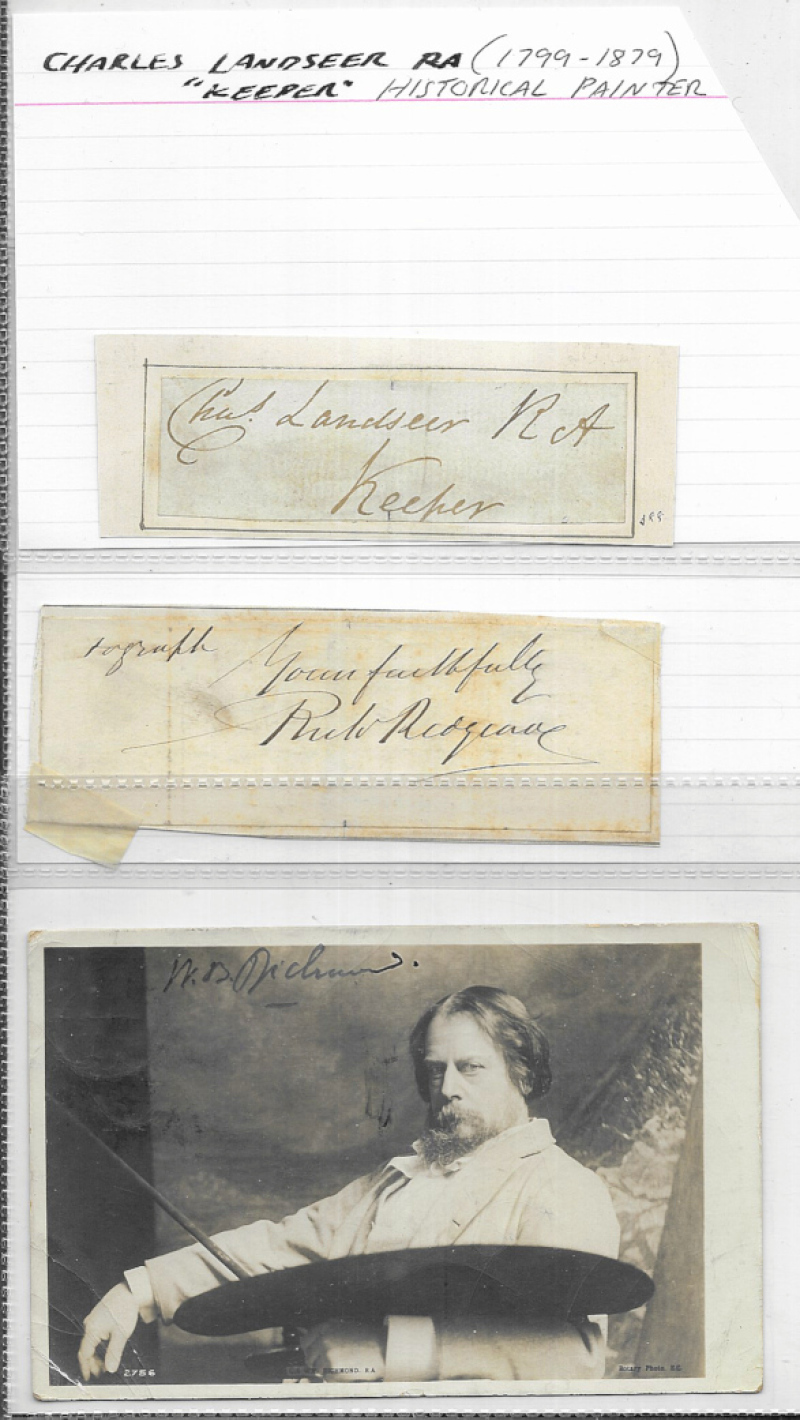 CHARLES LANDSEER RA (1799-1879)
"KEEPER" HISTORICAL PAINTER
Chas. Landseer RA
Keeper
tograph Yours faithfully
W.B. Richmond.
2756
RICHMOND. R.A
Rotary Photo. E.C.